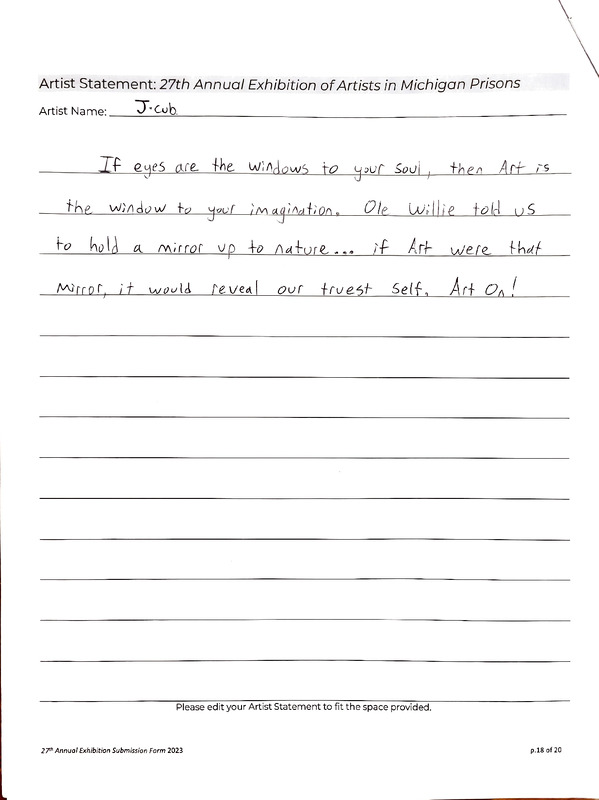 Artist Statement: 27th Annual Exhibition of Artists in Michigan Prisons
Artist Name: J-cub
If eyes are the windows to your soul, then Art is
the window to your imagination. Ole Willie told us
to hold a mirror up to nature... if Art were that
Mirror, it would reveal our truest self. Art On!
Please edit your Artist Statement to fit the space provided.
27th Annual Exhibition Submission Form 2023
p.18 of 20